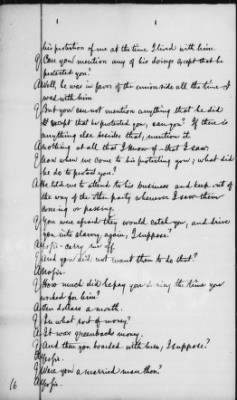 his protection of me at the time I lived with him
Q Can you mention any of his doings except that he
protected you?
A Well, he was in favor of the union side all the time I
was with him
Q But you can not mention anything that he did
except that he protected you, can you? If there is
anything else besides that, mention it
A nothing at all that I know of - that I saw
Q now when we come to his protecting you; what did
he do to protect you?
A He told me to attend to his business and keep out of
the way of the other party whenever I saw them
coming or passing
Q You was afraid they would catch you, and drive
you into slavery, again, I suppose?
A yes sir - carry me off
Q And you did not want them to do that?
A No sir.
Q How much did he pay you during the time you
worked for him
A ten dollars a month.
Q In what sort of money?
A It was greenbacks money.
Q And then you boarded with him, I suppose?
A Yes sir.
Q Were you a married man then?
A Yes sir.
16